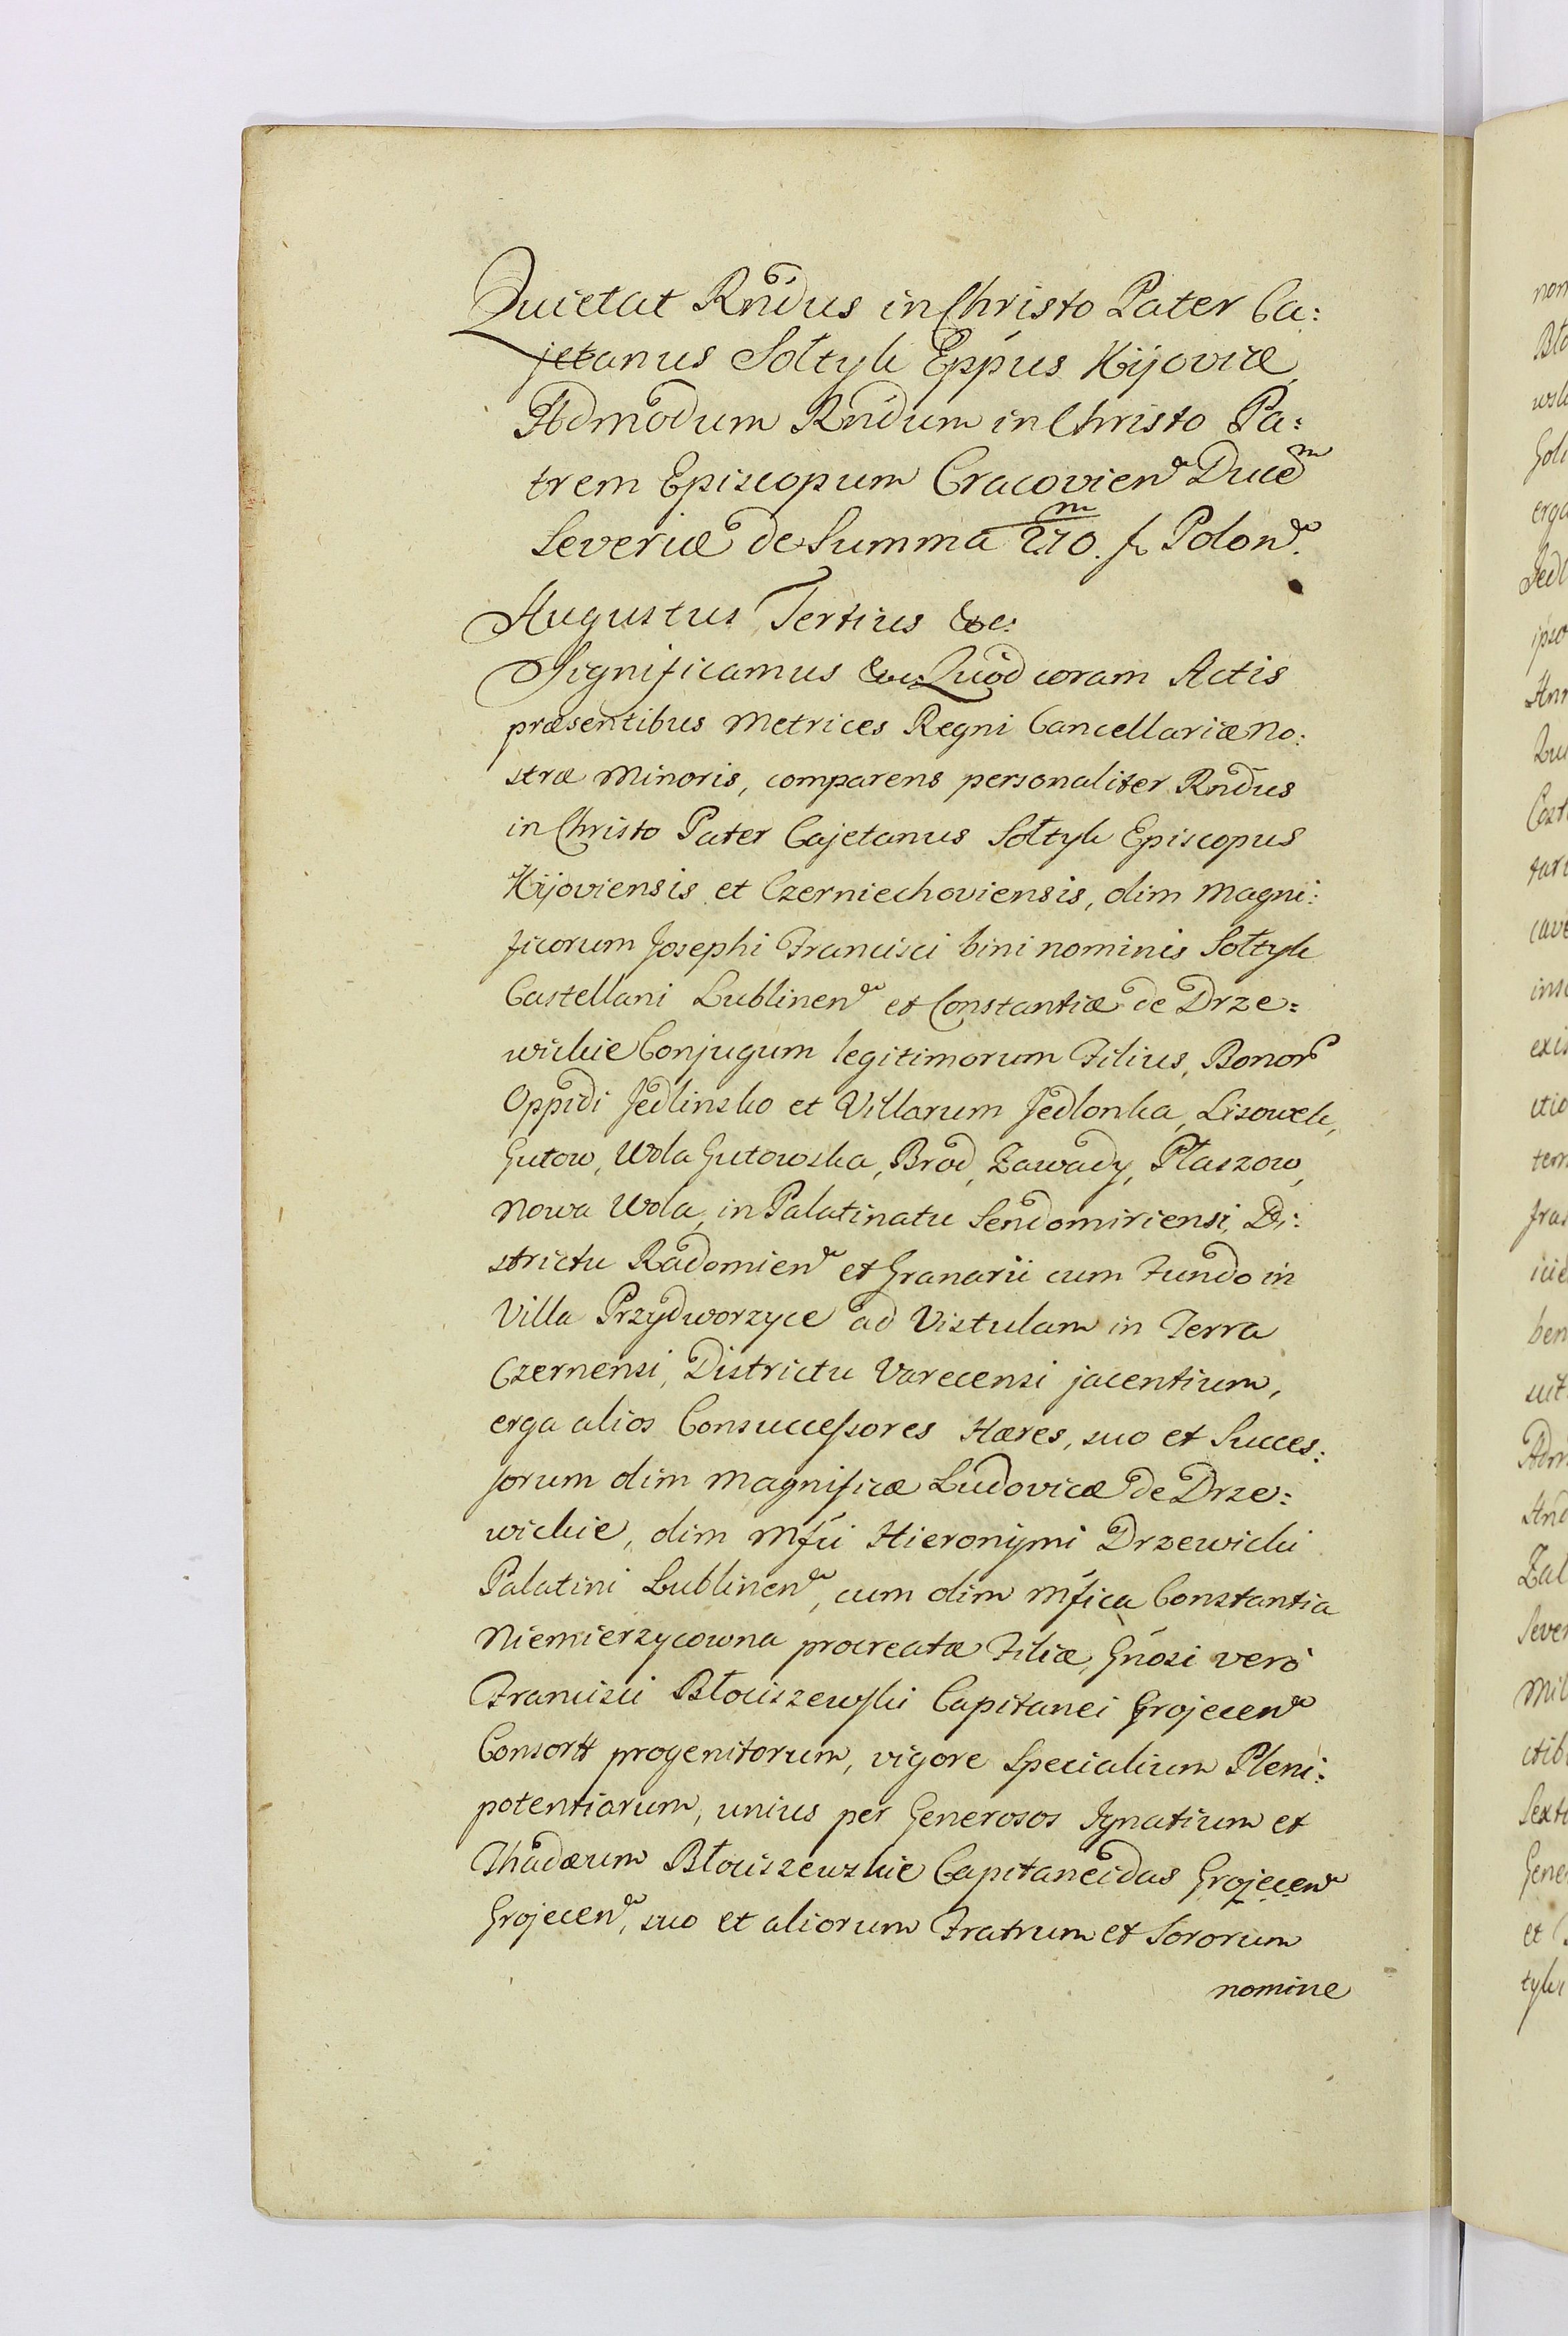 Quietat Rndus in Christo Pater Ca:
jetanus Sołtyk Eppus Kijoviæ
Admodum Rndum in Christo Pa:
trem Episcopum Cracovien Ducem
Severiæ de Summa 270. m f. Polon.
Augustus Tertius &c:
Significamus &c: Quod coram Actis
præsentibus Metrices Regni Cancellariæ No:
stræ Minoris, comparens personaliter Rndus
in Christo Pater Cajetanus Sołtyk Episcopus
Kijoviensis et Czerniechoviensis, olim Magni:
ficorum Josephi Francisci bini nominis Sołtyk
Castellani Lublinen et Constantiæ de Drze=
wickie Conjugum legitimorum Filius, Bonor
Oppidi Jedlinsko et Villarum Jedlonka, Lisowek,
Gutow, Wola Gutowska, Brod, Zawady, Płaszow,
Nowa Wola, in Palatinatu Sendomiriensi, Di:
strictu Radomien et Granarii cum Fundo in
Villa Przydworzyce ad Vistulam in Terra
Czernensi, Districtu Varecensi jacentium,
erga alios Consuccessores Hæres, suo et Succes:
sorum olim Magnificæ Ludovicæ de Drze:
wickie, olim Mfci Hieronymi Drzewicki
Palatini Lublinen, cum olim Mfica Constantia
Niemierzycowna procreatæ Filiæ, Gnosi verò
Francisci Błociszewski Capitanei Grojecen
Consortt progenitorum, vigore Specialium Pleni:
potentiarum, unius per Generosos Ignatium et
Thadæum Błociszewskie Capitaneidas Grojecen
Grojecen, suo et aliorum Fratrum et Sororum
nomine